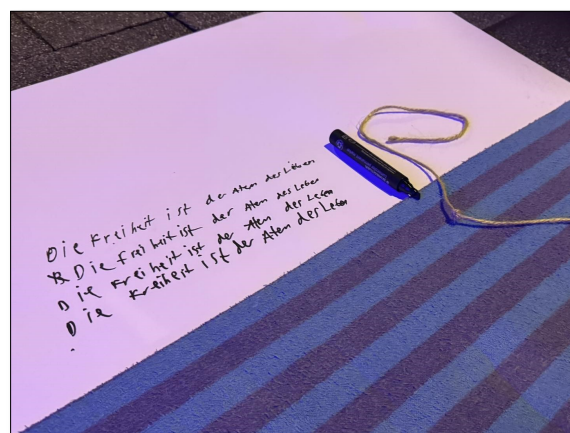 Die Freiheit ist der Atem des Lebens
& Die Freiheit ist der Atem des Leben
Die Freiheit ist der Atem des Leben
Die Freiheit ist der Atem des Leben